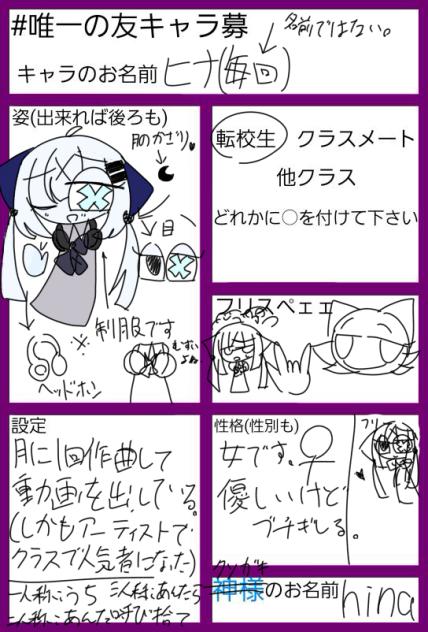 #唯一の友キャラ募
名前ではない。
キャラのお名前 ヒナ(毎回)
姿(出来れば後ろも)
月のかざり
目
※制服です
むずいよね
ヘッドホン
転校生 クラスメート
他クラス
どれかに○を付けて下さい
フリスペェェ
設定
月に1回作曲して
動画を出している。
(しかもアーティストで
クラスで人気者になった)
一人称:うち 三人称:あんたら
二人称:あんた 呼び捨て
性格(性別も)
女です。♀
優しいけど
ブチギレる。
フリ
クソガキ
神様のお名前
hina